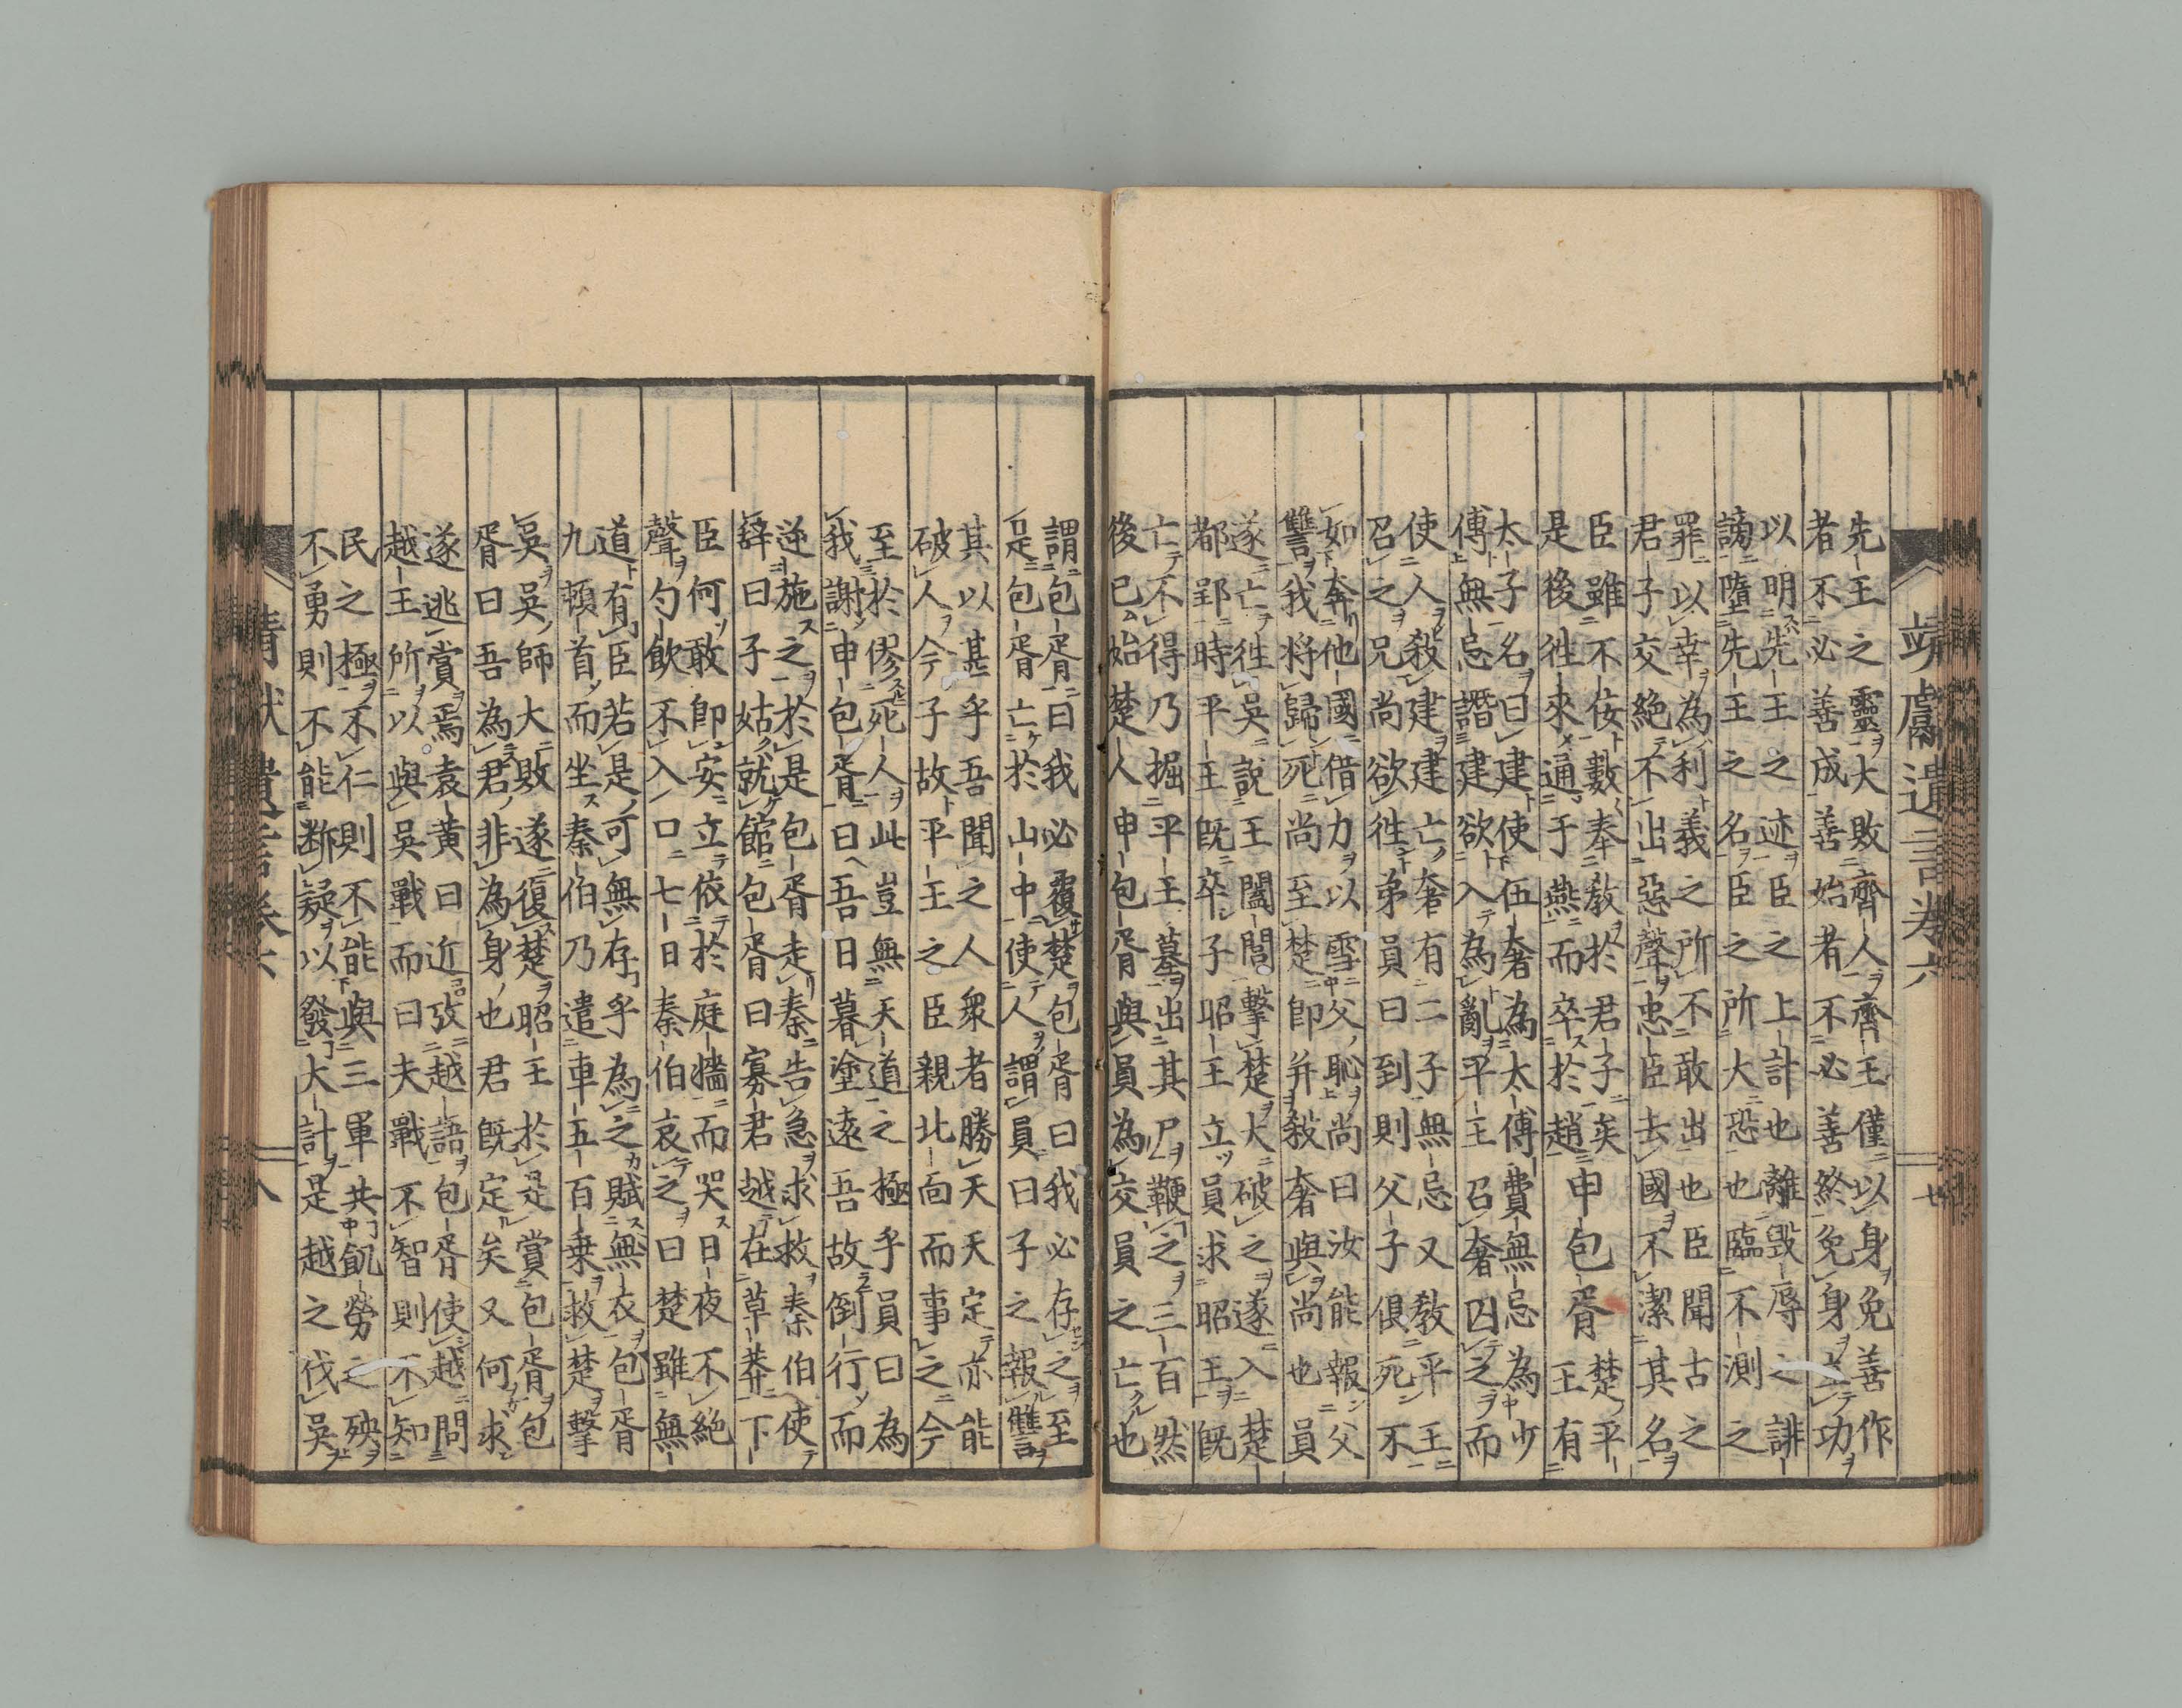 靖獻遺言卷六　七
先王之靈大敗齊人齊王僅以身免善作
者不必善成善始者不必善終免身立功
以明先王之迹臣之上計也離毀辱之誹
謗隳先王之名臣之所大恐也臨不測之
罪以幸為利義之所不敢出也臣聞古之
君子交絕不出惡聲忠臣去國不潔其名
臣雖不佞數奉敎於君子矣
是後徃來通于燕而卒於趙
申包胥
楚平
王有
太子名曰建使伍奢為太傅費無忌為少
傅無忌譖建欲入為亂平王召奢囚之而
使人殺建建亡奢有二子無忌又敎平王
召之兄尚欲徃弟員曰到則父子俱死不
如奔他國借力以雪父恥尚曰汝能報父
讐我將歸死尚至楚即并殺奢與尚也員
遂亡徃吳說王闔閭擊楚大破之遂入楚
都郢時平王既卒子昭王立員求昭王既
亡不得乃掘平王墓出其尸鞭之三百然
後已始楚人申包胥與員為交員之亡也
謂包胥曰我必覆楚包胥曰我必存之至
是包胥亡於山中使人謂員曰子之報讐
其以甚乎吾聞之人衆者勝天天定亦能
破人今子故平王之臣親北面而事之今
至於僇死人此豈無天道之極乎員曰為
我謝申包胥曰吾日暮塗遠吾故倒行而
逆施之於是包胥走秦告急求救秦伯使
辭曰子姑就館包胥曰寡君越在草莽下
臣何敢即安立依於庭牆而哭日夜不絕
聲勺飲不入口七日秦伯哀之曰楚雖無
道有臣若是可無存乎為之賦無衣包胥
九頓首而坐秦伯乃遣車五百乗救楚擊
吳吳師大敗遂復楚昭王於是賞包胥包
胥曰吾為君非為身也君既定矣又何求
遂逃賞焉袁黃曰近攷越語包胥使越問
越王所以與吳戰而曰夫戰不智則不知
民之極不仁則不能與三軍共飢勞之殃
不勇則不能斷疑以發大計是越之伐吳
靖獻遺言卷六　八